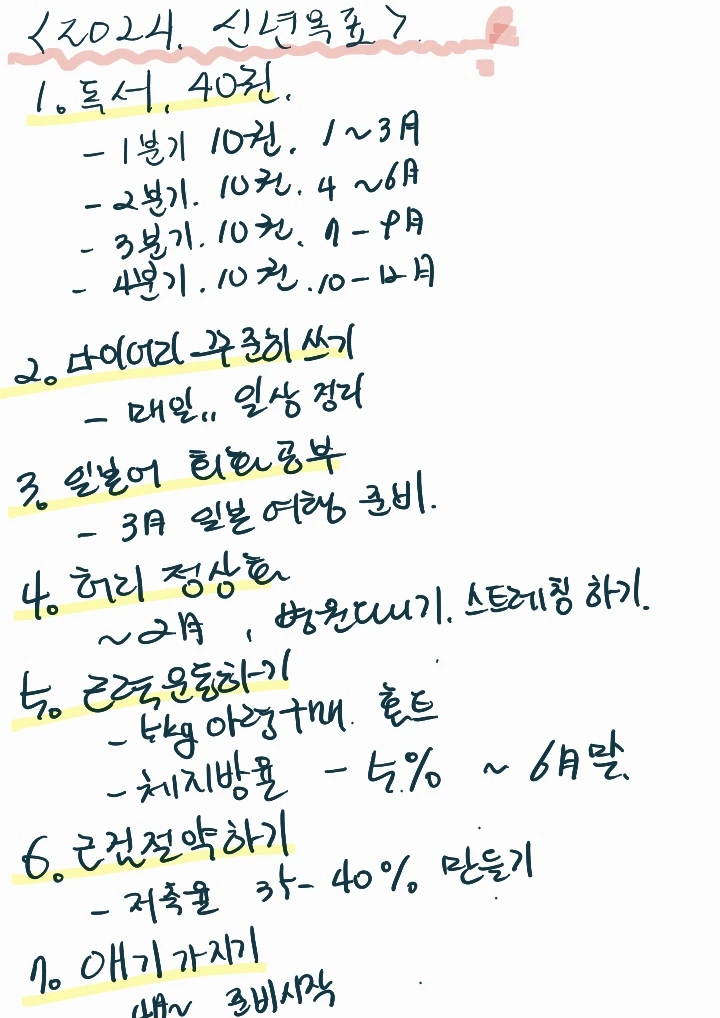 <2024. 신년목표>
1. 독서. 40권.
- 1분기 10권. 1~3月
- 2분기. 10권. 4~6月
- 3분기. 10권. 7-9月
- 4분기. 10권. 10-12月
2. 다이어리 꾸준히 쓰기
- 매일.. 일상 정리
3. 일본어 회화 공부
- 3月 일본 여행 준비.
4. 허리 정상화
~2月, 병원다니기. 스트레칭 하기.
5. 근력운동하기
- 5kg 아령구매. 홈트
- 체지방율 - 5% ~ 6月말.
6. 근검절약하기
- 저축율 35-40% 만들기
7. 애기 가지기
4月~ 준비시작